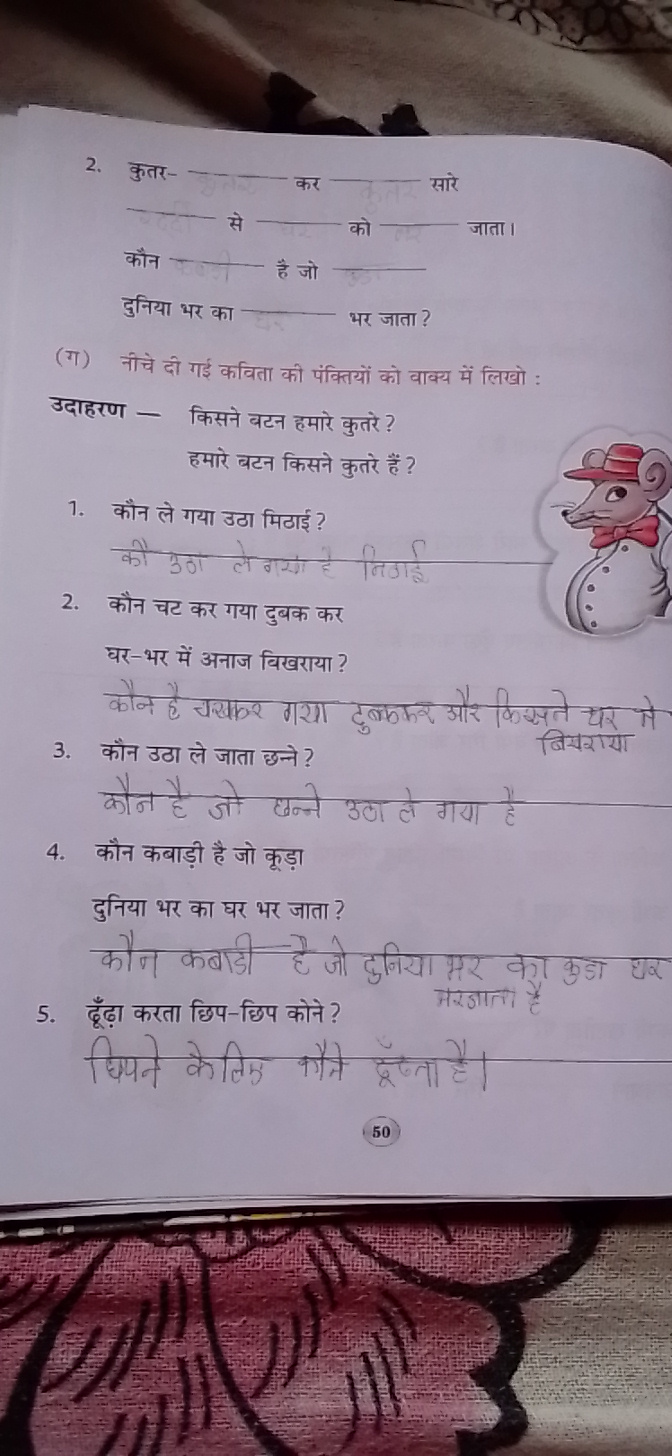 2. कुतर- ______ कर ______ सारे
______ से ______ को ______ जाता।
कौन ______ है जो ______
दुनिया भर का ______ भर जाता?
(ग) नीचे दी गई कविता की पंक्तियों को वाक्य में लिखो :
उदाहरण — किसने बटन हमारे कुतरे?
हमारे बटन किसने कुतरे हैं?
1. कौन ले गया उठा मिठाई?
की उठा ले गया है मिठाई
2. कौन चट कर गया दुबक कर
घर-भर में अनाज बिखराया?
कौन है गया दुबककर और किसने घर मे
बिखराया
3. कौन उठा ले जाता छन्ने?
कौन है जो छन्ने उठा ले गया है
4. कौन कबाड़ी है जो कूड़ा
दुनिया भर का घर भर जाता?
कौन कबाडी है जो दुनिया भर का कुडा घर
भरजाता है
5. ढूँढ़ा करता छिप-छिप कोने?
छिपने केलिए कौने ढूँढता है।
50